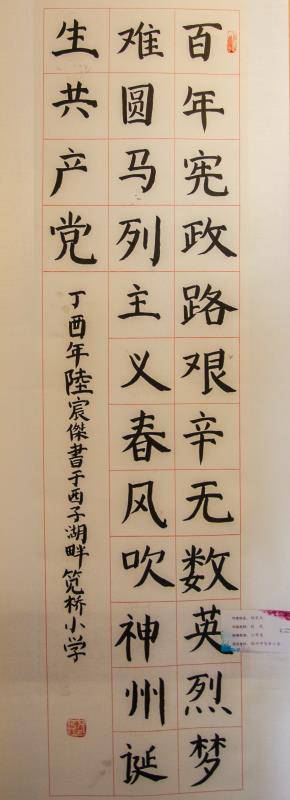 百年宪政路艰辛无数英烈梦
难圆马列主义春风吹神州诞
生共产党
丁酉年陸宸傑書于西子湖畔笕桥小学